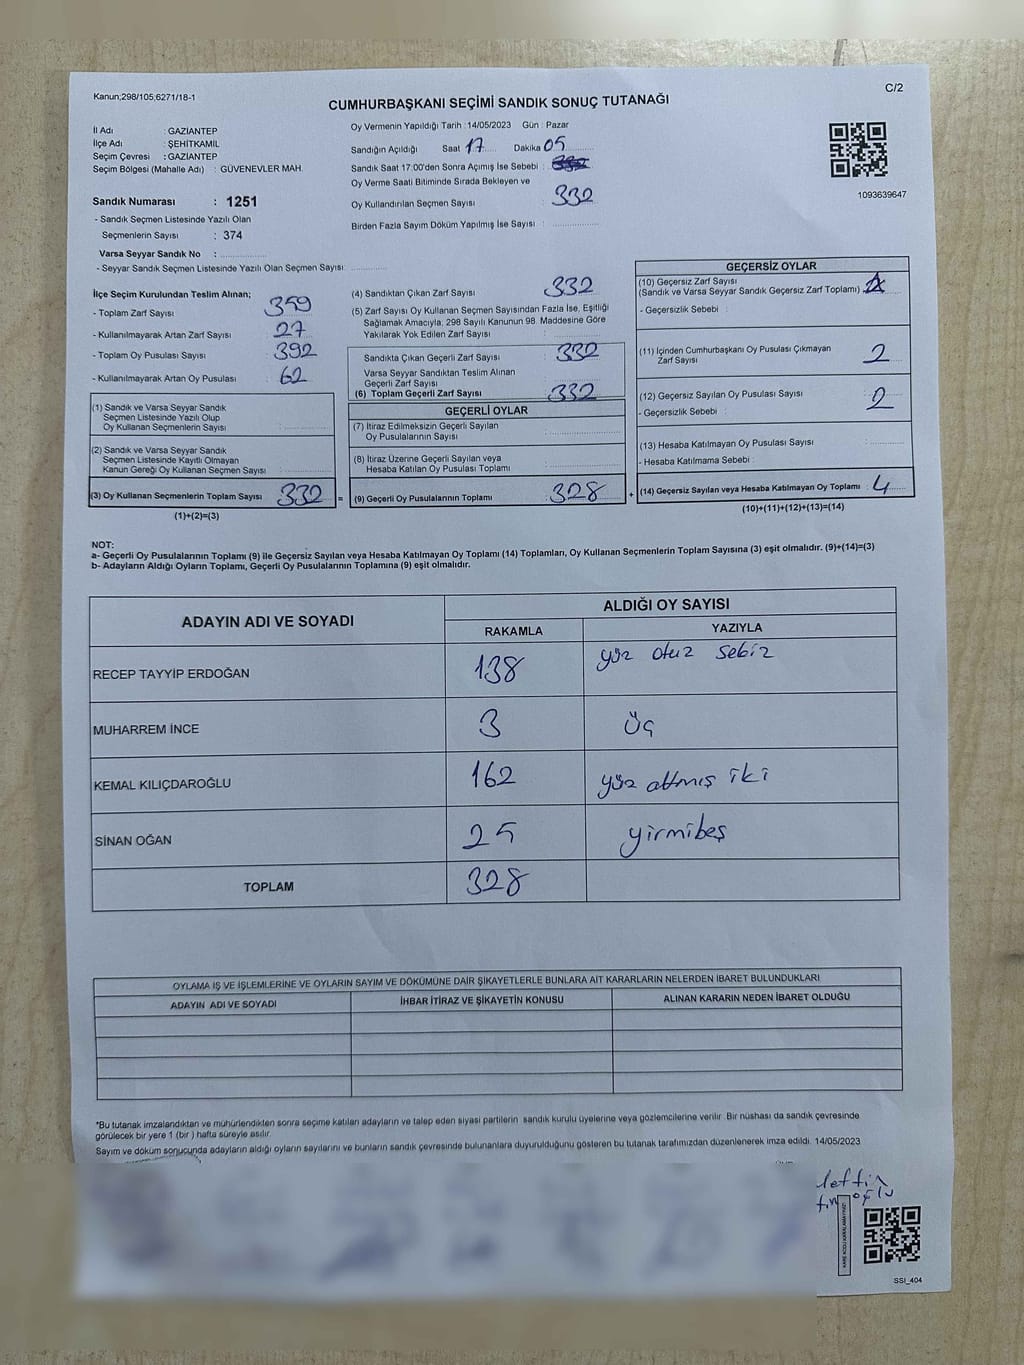 Kanun;298/105;6271/18-1
C/2
CUMHURBAŞKANI SEÇİMİ SANDIK SONUÇ TUTANAĞI
İl Adı : GAZİANTEP
İlçe Adı : ŞEHİTKAMİL
Seçim Çevresi : GAZİANTEP
Seçim Bölgesi (Mahalle Adı) : GÜVENEVLER MAH.
Sandık Numarası : 1251
- Sandık Seçmen Listesinde Yazılı Olan
Seçmenlerin Sayısı : 374
Varsa Seyyar Sandık No :
- Seyyar Sandık Seçmen Listesinde Yazılı Olan Seçmen Sayısı:
Oy Vermenin Yapıldığı Tarih : 14/05/2023 Gün : Pazar
Sandığın Açıldığı Saat 17 Dakika 05
Sandık Saat 17:00'den Sonra Açımış İse Sebebi :
Oy Verme Saati Bitiminde Sırada Bekleyen ve
Oy Kullandırılan Seçmen Sayısı : 332
Birden Fazla Sayım Döküm Yapılmış İse Sayısı :
1093639647
İlçe Seçim Kurulundan Teslim Alınan;
- Toplam Zarf Sayısı : 359
- Kullanılmayarak Artan Zarf Sayısı : 27
- Toplam Oy Pusulası Sayısı : 392
- Kullanılmayarak Artan Oy Pusulası : 62
(1) Sandık ve Varsa Seyyar Sandık
Seçmen Listesinde Yazılı Olup
Oy Kullanan Seçmenlerin Sayısı :
(2) Sandık ve Varsa Seyyar Sandık
Seçmen Listesinde Kayıtlı Olmayan
Kanun Gereği Oy Kullanan Seçmen Sayısı :
(3) Oy Kullanan Seçmenlerin Toplam Sayısı : 332 =
(1)+(2)=(3)
(4) Sandıktan Çıkan Zarf Sayısı : 332
(5) Zarf Sayısı Oy Kullanan Seçmen Sayısından Fazla İse, Eşitliği
Sağlamak Amacıyla; 298 Sayılı Kanunun 98. Maddesine Göre
Yakılarak Yok Edilen Zarf Sayısı :
Sandıkta Çıkan Geçerli Zarf Sayısı : 332
Varsa Seyyar Sandıktan Teslim Alınan
Geçerli Zarf Sayısı :
(6) Toplam Geçerli Zarf Sayısı : 332
GEÇERLİ OYLAR
(7) İtiraz Edilmeksizin Geçerli Sayılan
Oy Pusulalarının Sayısı :
(8) İtiraz Üzerine Geçerli Sayılan veya
Hesaba Katılan Oy Pusulası Toplamı :
(9) Geçerli Oy Pusulalarının Toplamı : 328 +
GEÇERSİZ OYLAR
(10) Geçersiz Zarf Sayısı
(Sandık ve Varsa Seyyar Sandık Geçersiz Zarf Toplamı) :
- Geçersizlik Sebebi :
(11) İçinden Cumhurbaşkanı Oy Pusulası Çıkmayan
Zarf Sayısı : 2
(12) Geçersiz Sayılan Oy Pusulası Sayısı : 2
- Geçersizlik Sebebi :
(13) Hesaba Katılmayan Oy Pusulası Sayısı :
- Hesaba Katılmama Sebebi :
(14) Geçersiz Sayılan veya Hesaba Katılmayan Oy Toplamı : 4
(10)+(11)+(12)+(13)=(14)
NOT:
a- Geçerli Oy Pusulalarının Toplamı (9) ile Geçersiz Sayılan veya Hesaba Katılmayan Oy Toplamı (14) Toplamları, Oy Kullanan Seçmenlerin Toplam Sayısına (3) eşit olmalıdır. (9)+(14)=(3)
b- Adayların Aldığı Oyların Toplamı, Geçerli Oy Pusulalarının Toplamına (9) eşit olmalıdır.
ADAYIN ADI VE SOYADI ALDIĞI OY SAYISI
RAKAMLA YAZIYLA
RECEP TAYYİP ERDOĞAN 138 yüz otuz sekiz
MUHARREM İNCE 3 üç
KEMAL KILIÇDAROĞLU 162 yüz altmış iki
SİNAN OĞAN 25 yirmibeş
TOPLAM 328
OYLAMA İŞ VE İŞLEMLERİNE VE OYLARIN SAYIM VE DÖKÜMÜNE DAİR ŞİKAYETLERLE BUNLARA AİT KARARLARIN NELERDEN İBARET BULUNDUKLARI
ADAYIN ADI VE SOYADI İHBAR İTİRAZ VE ŞİKAYETİN KONUSU ALINAN KARARIN NEDEN İBARET OLDUĞU
*Bu tutanak imzalandıktan ve mühürlendikten sonra seçime katılan adayların ve talep eden siyasi partilerin sandık kurulu üyelerine veya gözlemcilerine verilir. Bir nüshası da sandık çevresinde
görülecek bir yere 1 (bir ) hafta süreyle asılır.
Sayım ve döküm sonucunda adayların aldığı oyların sayılarını ve bunların sandık çevresinde bulunanlara duyurulduğunu gösteren bu tutanak tarafımızdan düzenlenerek imza edildi. 14/05/2023
KARE KODU KARALAMAYINIZ!
SSI_404